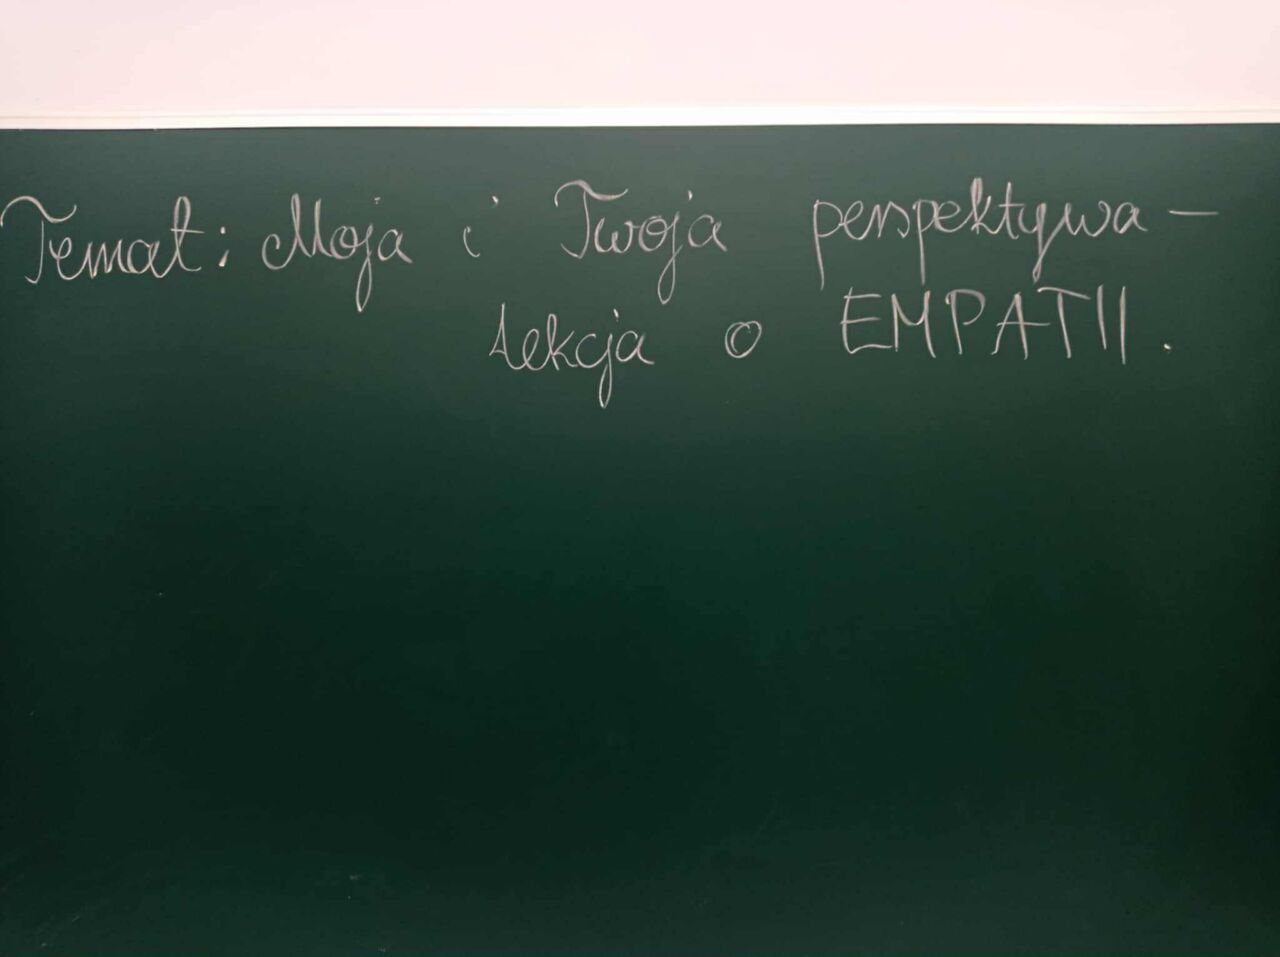 Temat: Moja i Twoja perspektywa –
lekcja o EMPATII.